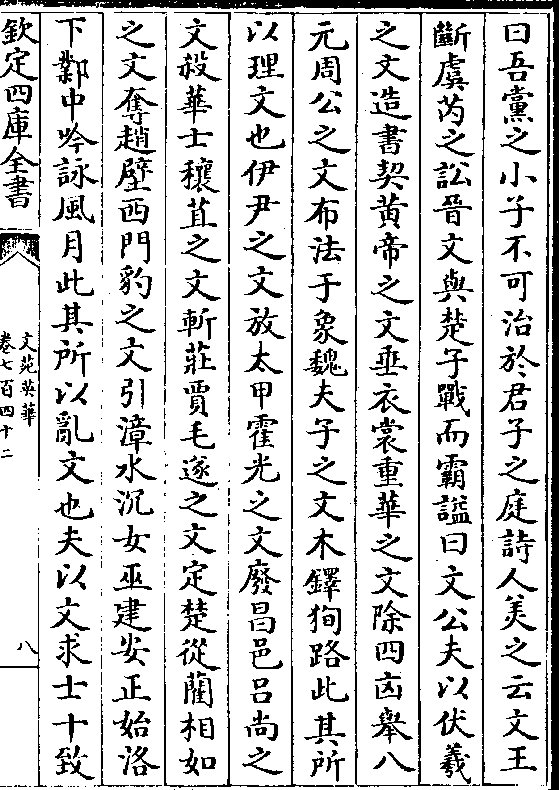 曰吾黨之小子不可治於君子之庭詩人美之云文王
斷虞芮之訟晉文與楚子戰而霸諡曰文公夫以伏羲
之文造書契黄帝之文垂衣裳重華之文除四凶舉八
元周公之文布法于象魏夫子之文木鐸狥路此其所
以理文也伊尹之文放太甲霍光之文廢昌邑吕尚之
文殺華士穰苴之文斬莊賈毛遂之文定楚從藺相如
之文奪趙壁西門豹之文引漳水沉女巫建安正始洛
下鄴中吟詠風月此其所以亂文也夫以文求士十致
欽定四庫全書
文苑英華
卷七百四十二
八